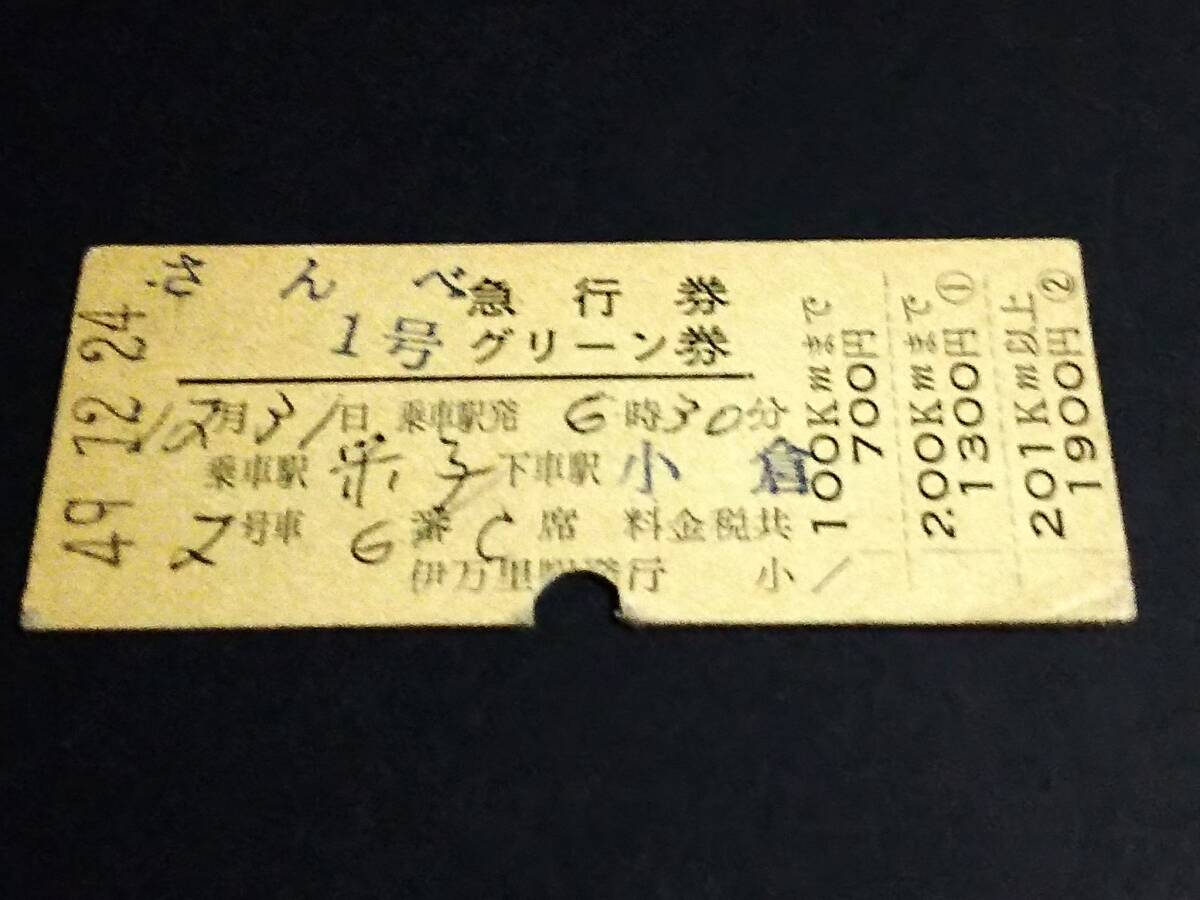 49 12.24
さんべ 急行券
1号 グリーン券
12月31日 乗車駅発 6時30分
乗車駅 米子 下車駅 小倉
2号車 6番C席 料金税共
伊万里駅発行 小
100Kmまで
700円
200Kmまで
1300円①
201Km以上
1900円②